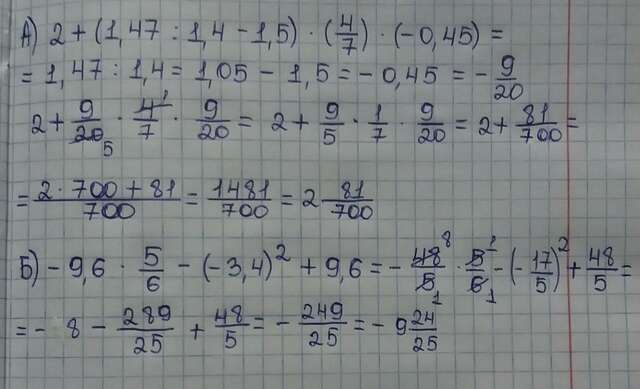 А) 2 + (1,47 : 1,4 - 1,5) · (4/7) · (-0,45) =
= 1,47 : 1,4 = 1,05 - 1,5 = - 0,45 = - 9/20
2 + 9/20 5 · 4 1/7 · 9/20 = 2 + 9/5 · 1/7 · 9/20 = 2 + 81/700 =
= 2 · 700 + 81/700 = 1481/700 = 2 81/700
Б) - 9,6 · 5/6 - (-3,4)² + 9,6 = - 48 8/5 1 · 5 1/6 1 - (- 17/5)² + 48/5 =
= - 8 - 289/25 + 48/5 = - 249/25 = - 9 24/25